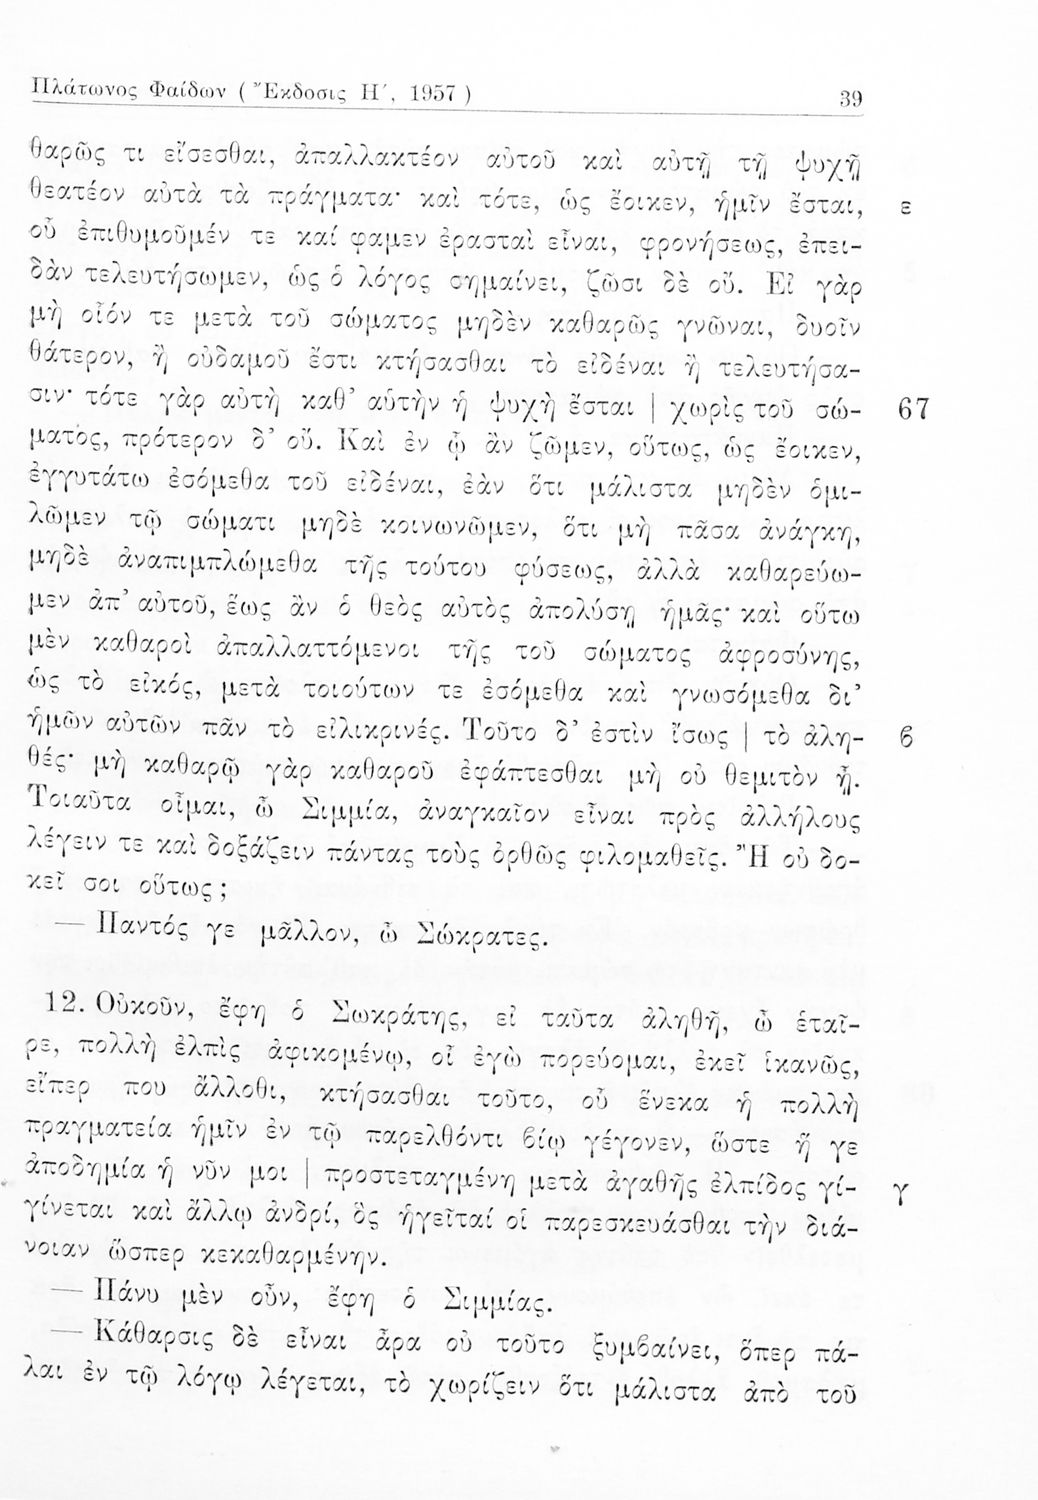 Πλάτωνος Φαίδων ( Ἔκδοσις Η΄, 1957 ) 39
θαρῶς τι εἴσεσθαι, ἀπαλλακτέον αὐτοῦ καὶ αὐτῇ τῇ ψυχῇ
θεατέον αὐτὰ τὰ πράγματα· καὶ τότε, ὡς ἔοικεν, ἡμῖν ἔσται, ε
οὗ ἐπιθυμοῦμέν τε καί φαμεν ἐρασταὶ εἶναι, φρονήσεως, ἐπει-
δὰν τελευτήσωμεν, ὡς ὁ λόγος σημαίνει, ζῶσι δὲ οὔ. Εἰ γὰρ
μὴ οἷόν τε μετὰ τοῦ σώματος μηδὲν καθαρῶς γνῶναι, δυοῖν
θάτερον, ἢ οὐδαμοῦ ἔστι κτήσασθαι τὸ εἰδέναι ἢ τελευτήσα-
σιν· τότε γὰρ αὐτὴ καθ’ αὑτὴν ἡ ψυχὴ ἔσται | χωρὶς τοῦ σώ- 67
ματος, πρότερον δ’ οὔ. Καὶ ἐν ᾧ ἂν ζῶμεν, οὕτως, ὡς ἔοικεν,
ἐγγυτάτω ἐσόμεθα τοῦ εἰδέναι, ἐὰν ὅτι μάλιστα μηδὲν ὁμι-
λῶμεν τῷ σώματι μηδὲ κοινωνῶμεν, ὅτι μὴ πᾶσα ἀνάγκη,
μηδὲ ἀναπιμπλώμεθα τῆς τούτου φύσεως, ἀλλὰ καθαρεύω-
μεν ἀπ’ αὐτοῦ, ἕως ἂν ὁ θεὸς αὐτὸς ἀπολύσῃ ἡμᾶς· καὶ οὕτω
μὲν καθαροὶ ἀπαλλαττόμενοι τῆς τοῦ σώματος ἀφροσύνης,
ὡς τὸ εἰκός, μετὰ τοιούτων τε ἐσόμεθα καὶ γνωσόμεθα δι’
ἡμῶν αὐτῶν πᾶν τὸ εἰλικρινές. Τοῦτο δ’ ἐστὶν ἴσως | τὸ ἀλη- ϐ
θές· μὴ καθαρῷ γὰρ καθαροῦ ἐφάπτεσθαι μὴ οὐ θεμιτὸν ᾖ.
Τοιαῦτα οἶμαι, ὦ Σιμμία, ἀναγκαῖον εἶναι πρὸς ἀλλήλους
λέγειν τε καὶ δοξάζειν πάντας τοὺς ὀρθῶς φιλομαθεῖς. Ἢ οὐ δο-
κεῖ σοι οὕτως ;
— Παντός γε μᾶλλον, ὦ Σώκρατες.
12. Οὐκοῦν, ἔφη ὁ Σωκράτης, εἰ ταῦτα ἀληθῆ, ὦ ἑταῖ-
ρε, πολλὴ ἐλπὶς ἀφικομένῳ, οἷ ἐγὼ πορεύομαι, ἐκεῖ ἱκανῶς,
εἴπερ που ἄλλοθι, κτήσασθαι τοῦτο, οὗ ἕνεκα ἡ πολλὴ
πραγματεία ἡμῖν ἐν τῷ παρελθόντι ϐίῳ γέγονεν, ὥστε ἥ γε
ἀποδημία ἡ νῦν μοι | προστεταγμένη μετὰ ἀγαθῆς ἐλπίδος γί- γ
γίνεται καὶ ἄλλῳ ἀνδρί, ὃς ἡγεῖταί οἱ παρεσκευάσθαι τὴν διά-
νοιαν ὥσπερ κεκαθαρμένην.
— Πάνυ μὲν οὖν, ἔφη ὁ Σιμμίας.
— Κάθαρσις δὲ εἶναι ἆρα οὐ τοῦτο ξυμϐαίνει, ὅπερ πά-
λαι ἐν τῷ λόγῳ λέγεται, τὸ χωρίζειν ὅτι μάλιστα ἀπὸ τοῦ